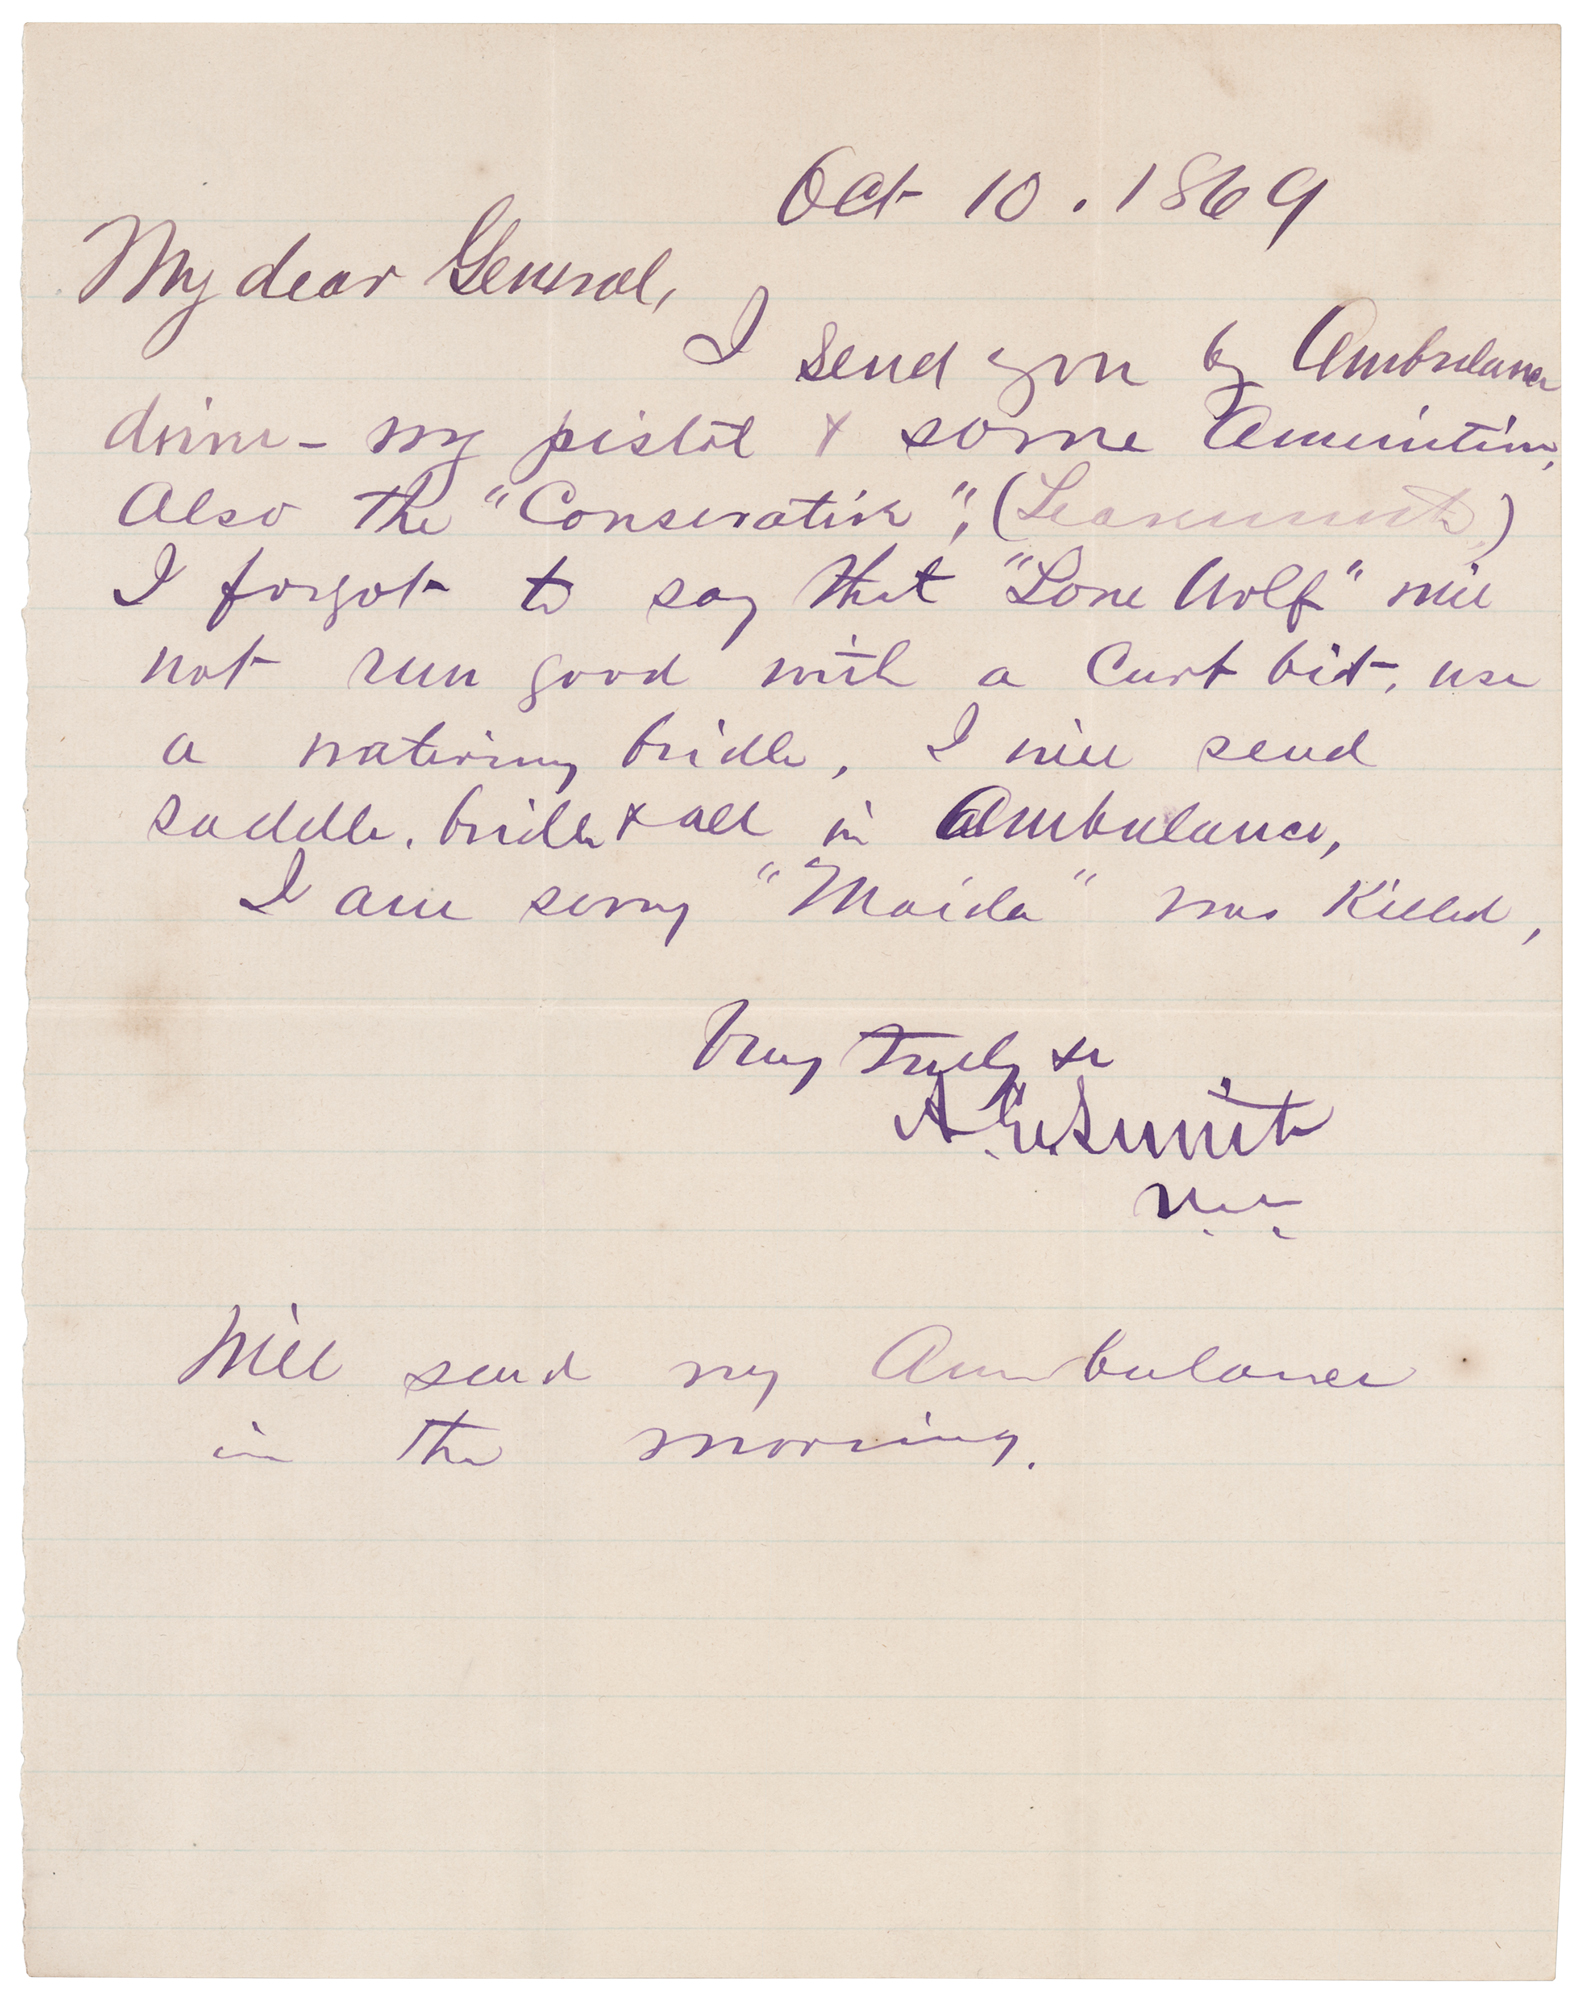 Oct 10. 1869
My dear General,
I send you by Ambulance
driver - my pistol & some Amunition,
Also the "Conservative", (Leavenworth)
I forgot to say that "Lone Wolf" will
not run good with a Curb bit, use
a watering bridle, I will send
saddle, bridle & all in Ambulance,
I am sorry "Maida" was Killed,
Very Truly &c
A. Smith
Will send my Ambulance
in the morning.